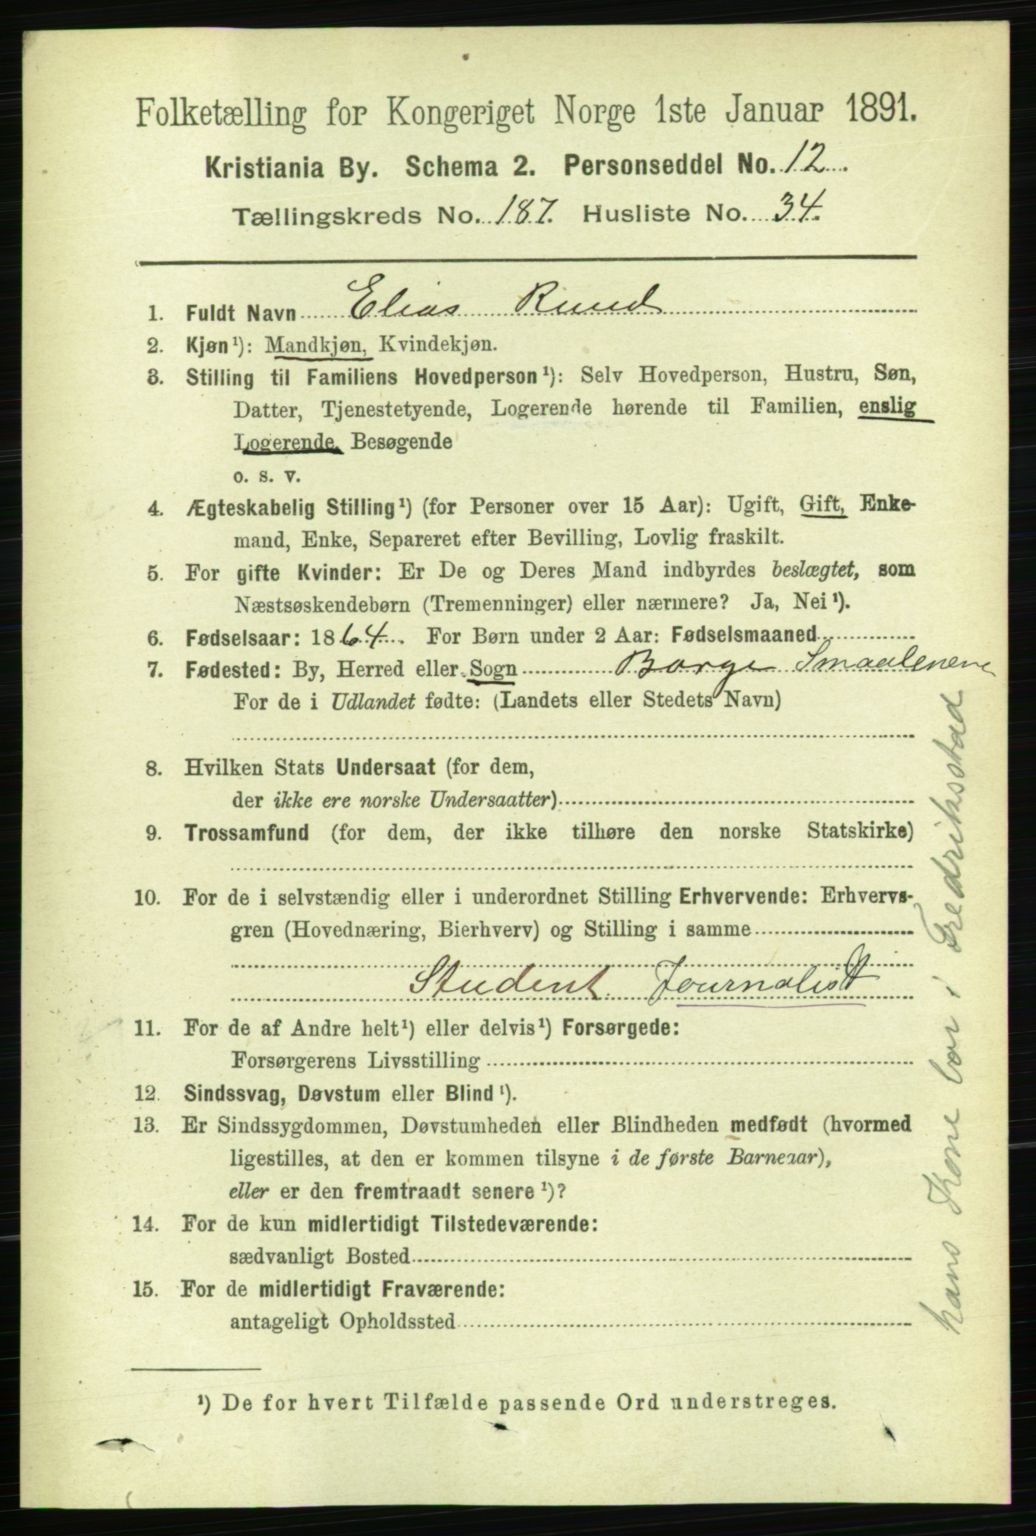 Folketælling for Kongeriget Norge 1ste Januar 1891.
Kristiania By. Schema 2. Personseddel No. 12.
Tællingskreds No. 187. Husliste No. 34.
1. Fuldt Navn Elias Ruud
2. Kjøn ¹): Mandkjøn, Kvindekjøn.
3. Stilling til Familiens Hovedperson ¹): Selv Hovedperson, Hustru, Søn,
Datter, Tjenestetyende, Logerende hørende til Familien, enslig
Logerende, Besøgende
o. s. v.
4. Ægteskabelig Stilling ¹) (for Personer over 15 Aar): Ugift, Gift, Enke-
mand, Enke, Separeret efter Bevilling, Lovlig fraskilt.
5. For gifte Kvinder: Er De og Deres Mand indbyrdes beslægtet, som
Næstsøskendebørn (Tremenninger) eller nærmere? Ja, Nei ¹).
6. Fødselsaar: 1864. For Børn under 2 Aar: Fødselsmaaned
7. Fødested: By, Herred eller Sogn Borge Smaalenene
For de i Udlandet fødte: (Landets eller Stedets Navn)
8. Hvilken Stats Undersaat (for dem,
der ikke ere norske Undersaatter)
9. Trossamfund (for dem, der ikke tilhøre den norske Statskirke)
10. For de i selvstændig eller i underordnet Stilling Erhvervende: Erhvervs-
gren (Hovednæring, Bierhverv) og Stilling i samme
Student Journalist
11. For de af Andre helt ¹) eller delvis ¹) Forsørgede:
Forsørgerens Livsstilling
12. Sindssvag, Døvstum eller Blind ¹).
13. Er Sindssygdommen, Døvstumheden eller Blindheden medfødt (hvormed
ligestilles, at den er kommen tilsyne i de første Barneaar),
eller er den fremtraadt senere ¹)?
14. For de kun midlertidigt Tilstedeværende:
sædvanligt Bosted
15. For de midlertidigt Fraværende:
antageligt Opholdssted
¹) De for hvert Tilfælde passende Ord understreges.
hans Kone bor i Fredriksstad